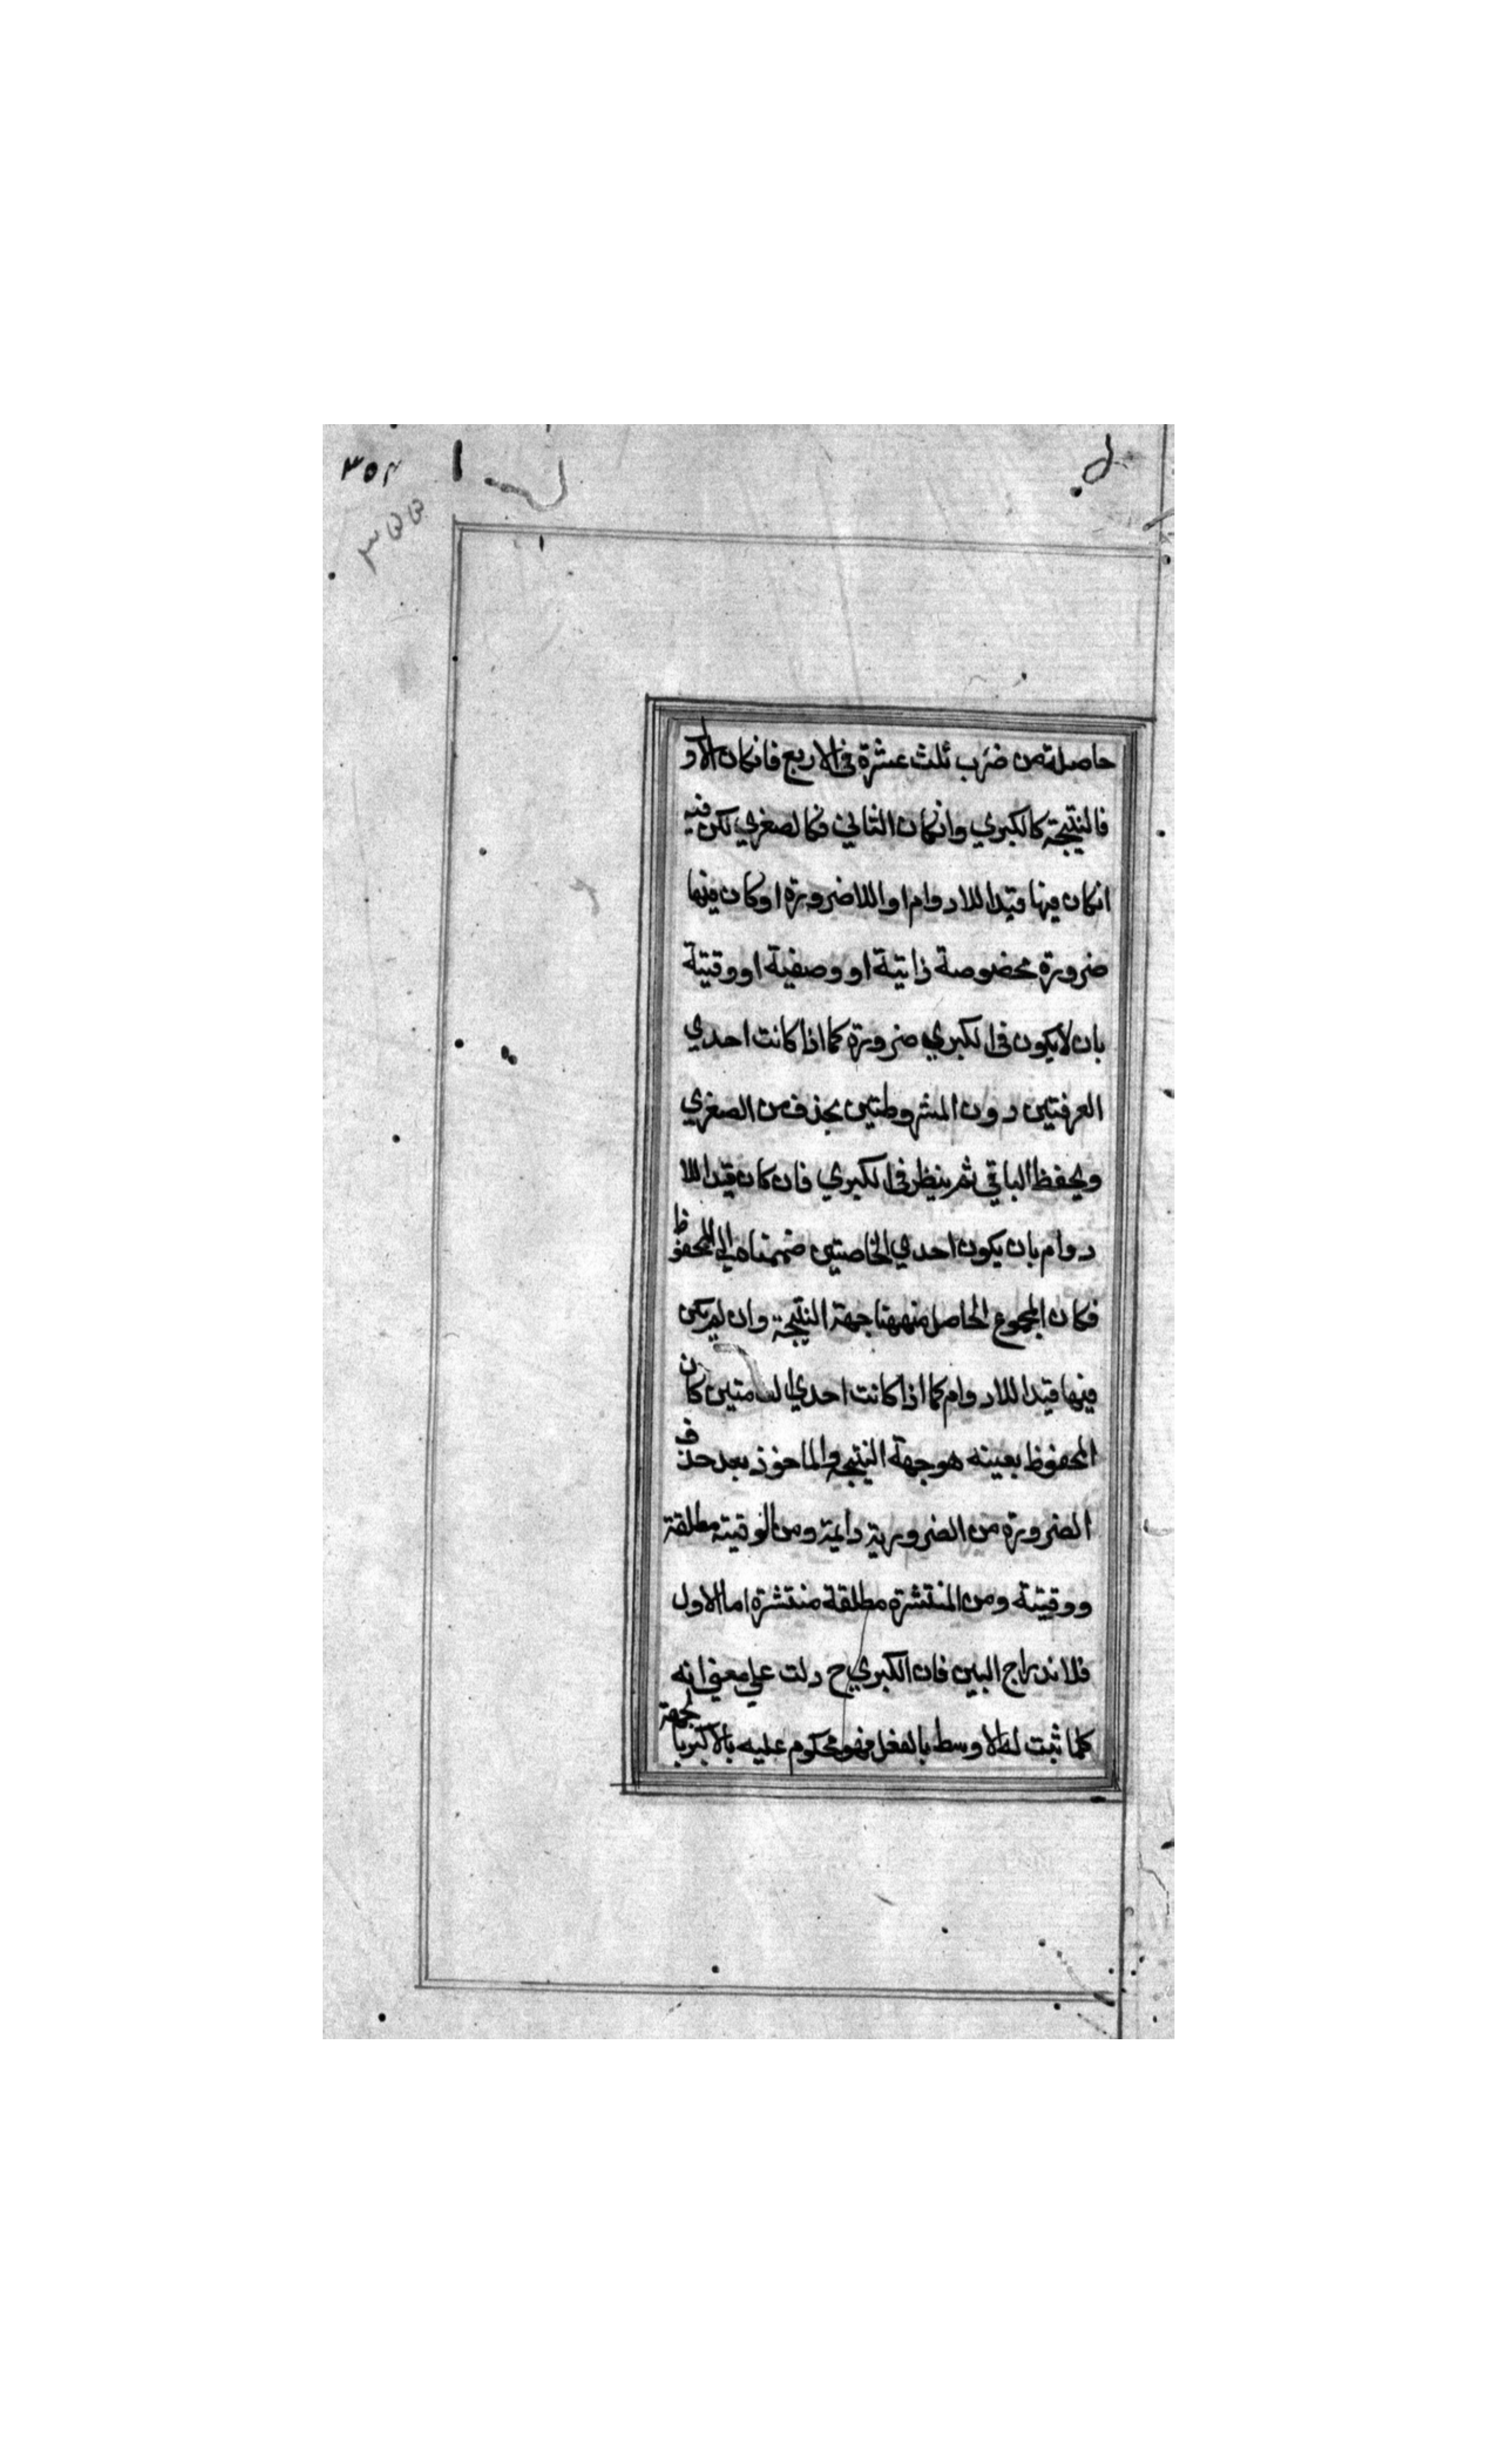 ٣٥٤
حاصلة من ضرب ثلث عشرة في الاربع فانكان الاو
فالنتيجة كالكبري وانكان الثاني فكالصغري لكن فيه
انكان فيها قيد اللادوام او اللاضرورة او كان فيها
ضرورة مخصوصة ذاتية او وصفية او وقتية
بان لايكون في الكبري ضرورة كما اذا كانت احدي
العرفتين دون المشروطتين يحذف من الصغري
ويحفظ الباقي ثم ينظر في الكبري فان كان قيد اللا
دوام بان يكون احدي الخاصتين ضممناه الي المحفوظ
فكان المجموع الحاصل منهما جهة النتيجة وان لم يكن
فيها قيد اللادوام كما اذا كانت احدي العامتين كان
المحفوظ بعينه هو جهة النتيجة والماخوذ بعد حذف
الضرورة من الضرورية دايمة ومن الوقتية مطلقة
ووقيتة ومن المنتشرة مطلقة منتشرة اما الاول
فلاندراج البين فان الكبري ح دلت علي معني انه
كلما ثبت له الاوسط بالفعل فهو محكوم عليه بالاكبر بالجهة